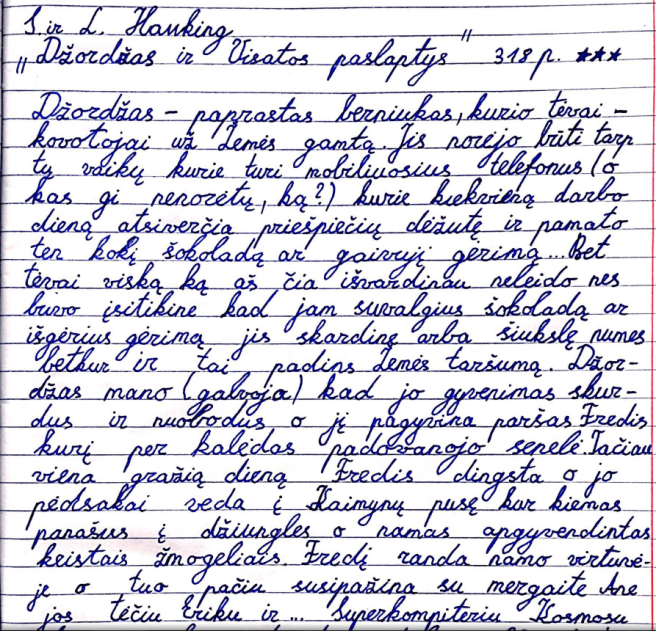 S. ir L. Hauking
„Džordžas ir Visatos paslaptys" 318 p. ★★★
Džordžas – paprastas berniukas, kurio tėvai –
kovotojai už Žemės gamtą. Jis norėjo būti tarp
tų vaikų kurie turi mobiliuosius telefonus (o
kas gi nenorėtų, ką?) kurie kiekvieną darbo
dieną atsiverčia priešpiečių dėžutę ir pamato
ten kokį šokoladą ar gaivųjį gėrimą... Bet
tėvai viską ką aš čia išvardinau neleido nes
buvo įsitikinę kad jam suvalgius šokoladą ar
išgėrius gėrimą jis skardinę arba šiukšlę numes
betkur ir tai padins Žemės taršumą. Džor-
džas mano (galvoja) kad jo gyvenimas skur-
dus ir nuobodus o jį pagyvina paršas Fredis
kurį per kalėdas padovanojo senelė. Tačiau
vieną gražią dieną Fredis dingsta o jo
pėdsakai veda į Kaimynų pusę kur kiemas
panašus į džiungles o namas apgyvendintas
keistais žmogeliais. Fredį randa namo virtuvė-
je o tuo pačiu susipažina su mergaite Ane
jos tėčiu Eriku ir ... Superkompiteriu Kosmosu